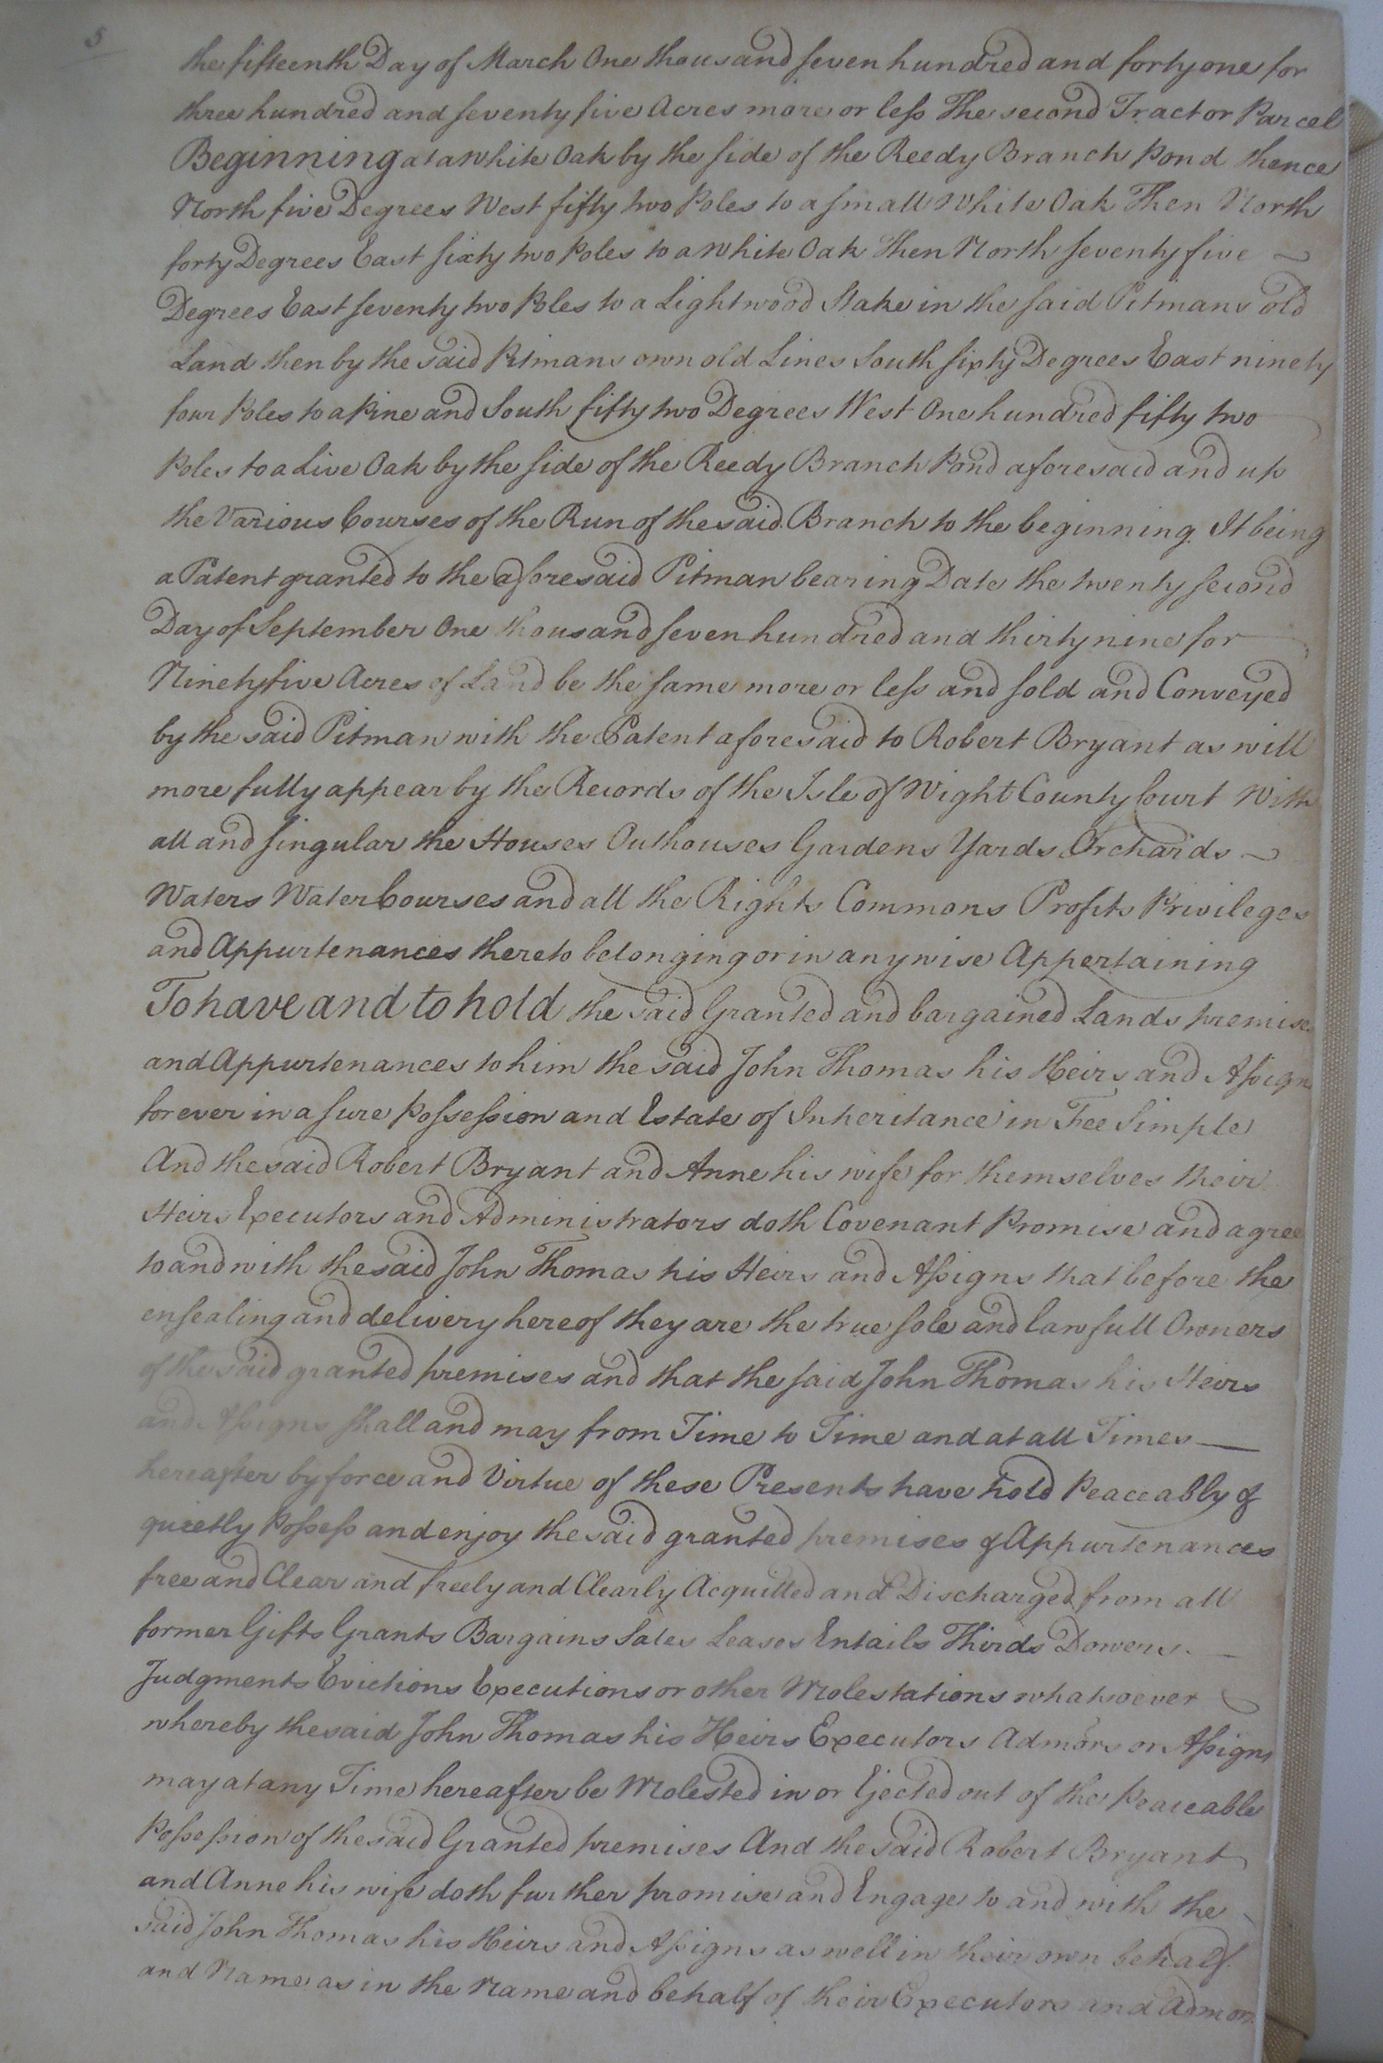 5
the fifteenth Day of March One thousand seven hundred and forty one for
three hundred and seventy five Acres more or less The second Tract or Parcel
Beginning at a White Oak by the side of the Reedy Branch Pond thence
North five Degrees West fifty two Poles to a small White Oak Then North
forty Degrees East sixty two Poles to a White Oak Then North seventy five
Degrees East seventy two Poles to a Lightwood Stake in the said Pitmans old
Land then by the said Pitmans own old Lines South sixty Degrees East ninety
four Poles to a Pine and South fifty two Degrees West One hundred fifty two
Poles to a Live Oak by the side of the Reedy Branch Pond aforesaid and up
the Various Courses of the Run of the said Branch to the beginning. It being
a Patent granted to the aforesaid Pitman bearing Date the twenty second
Day of September One thousand seven hundred and thirty nine for
Ninety five Acres of Land be the same more or less and sold and Conveyed
by the said Pitman with the Patent aforesaid to Robert Bryant as will
more fully appear by the Records of the Isle of Wight County Court With
all and singular the Houses Outhouses Gardens Yards Orchards
Waters Water Courses and all the Rights Commons Profits Privileges
and Appurtenances thereto belonging or in any wise Appertaining
To have and to hold the said Granted and bargained Lands premises
and Appurtenances to him the said John Thomas his Heirs and Assigns
forever in a sure Possession and Estate of Inheritance in Fee Simple
And the said Robert Bryant and Anne his wife for themselves their
Heirs Executors and Administrators doth Covenant Promise and agree
to and with the said John Thomas his Heirs and Assigns that before the
ensealing and delivery hereof they are the true sole and lawfull Owners
of the said granted premises and that the said John Thomas his Heirs
and Assigns shall and may from Time to Time and at all Times
hereafter by force and Virtue of these Presents have hold Peaceably &
quietly Possess and enjoy the said granted premises & Appurtenances
free and Clear and freely and Clearly Acquitted and Discharged from all
former Gifts Grants Bargains Sales Leases Entails Thirds Dowers.
Judgments Evictions Executions or other Molestations whatsoever
whereby the said John Thomas his Heirs Executors Admors or Assigns
may at any Time hereafter be Molested in or Ejected out of the Peaceable
Possession of the said Granted premises And the said Robert Bryant
and Anne his wife doth further promise and Engage to and with the
said John Thomas his Heirs and Assigns as well in their own behalf
and Name as in the Name and behalf of their Executors and Admors